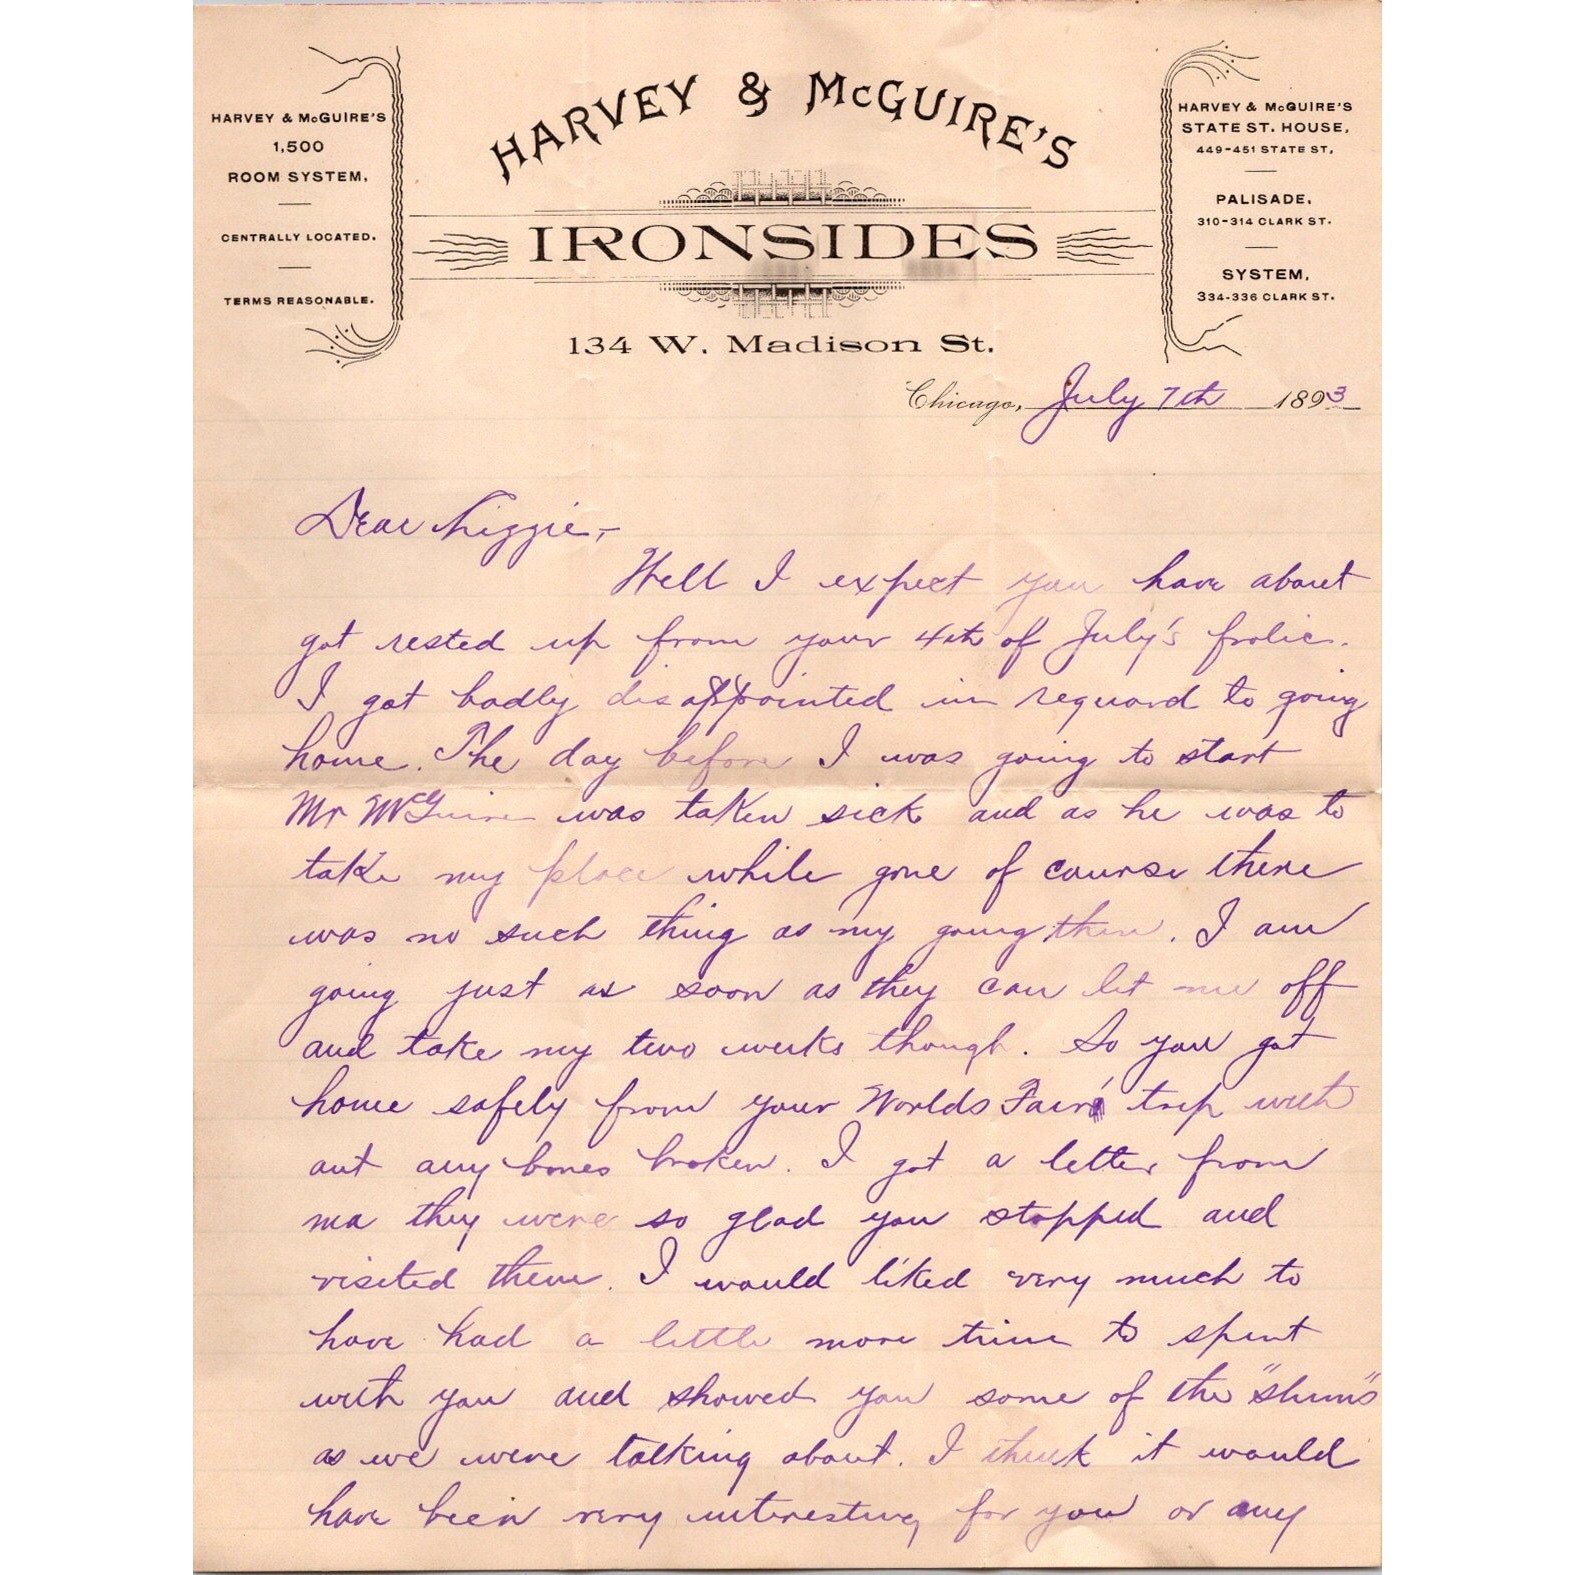 HARVEY & McGUIRE'S
1,500
ROOM SYSTEM,
CENTRALLY LOCATED.
TERMS REASONABLE.
HARVEY & McGUIRE'S
IRONSIDES
134 W. Madison St.
HARVEY & McGUIRE'S
STATE ST. HOUSE,
449-451 STATE ST,
PALISADE,
310-314 CLARK ST.
SYSTEM,
334-336 CLARK ST.
Chicago, July 7th 1893
Dear Lizzie,-
Well I expect you have about
got rested up from your 4th of July's frolic.
I got badly disappointed in reguard to going
home. The day before I was going to start
Mr McGuire was taken sick and as he was to
take my place while gone of course there
was no such thing as my going then. I am
going just as soon as they can let me off
and take my two weeks though. So you got
home safely from your Worlds Fair trip with
out any bones broken. I got a letter from
ma they were so glad you stopped and
visited them. I would liked very much to
have had a little more time to spent
with you and showed you some of the "slum's"
as we were talking about. I think it would
have been very interesting for you or any